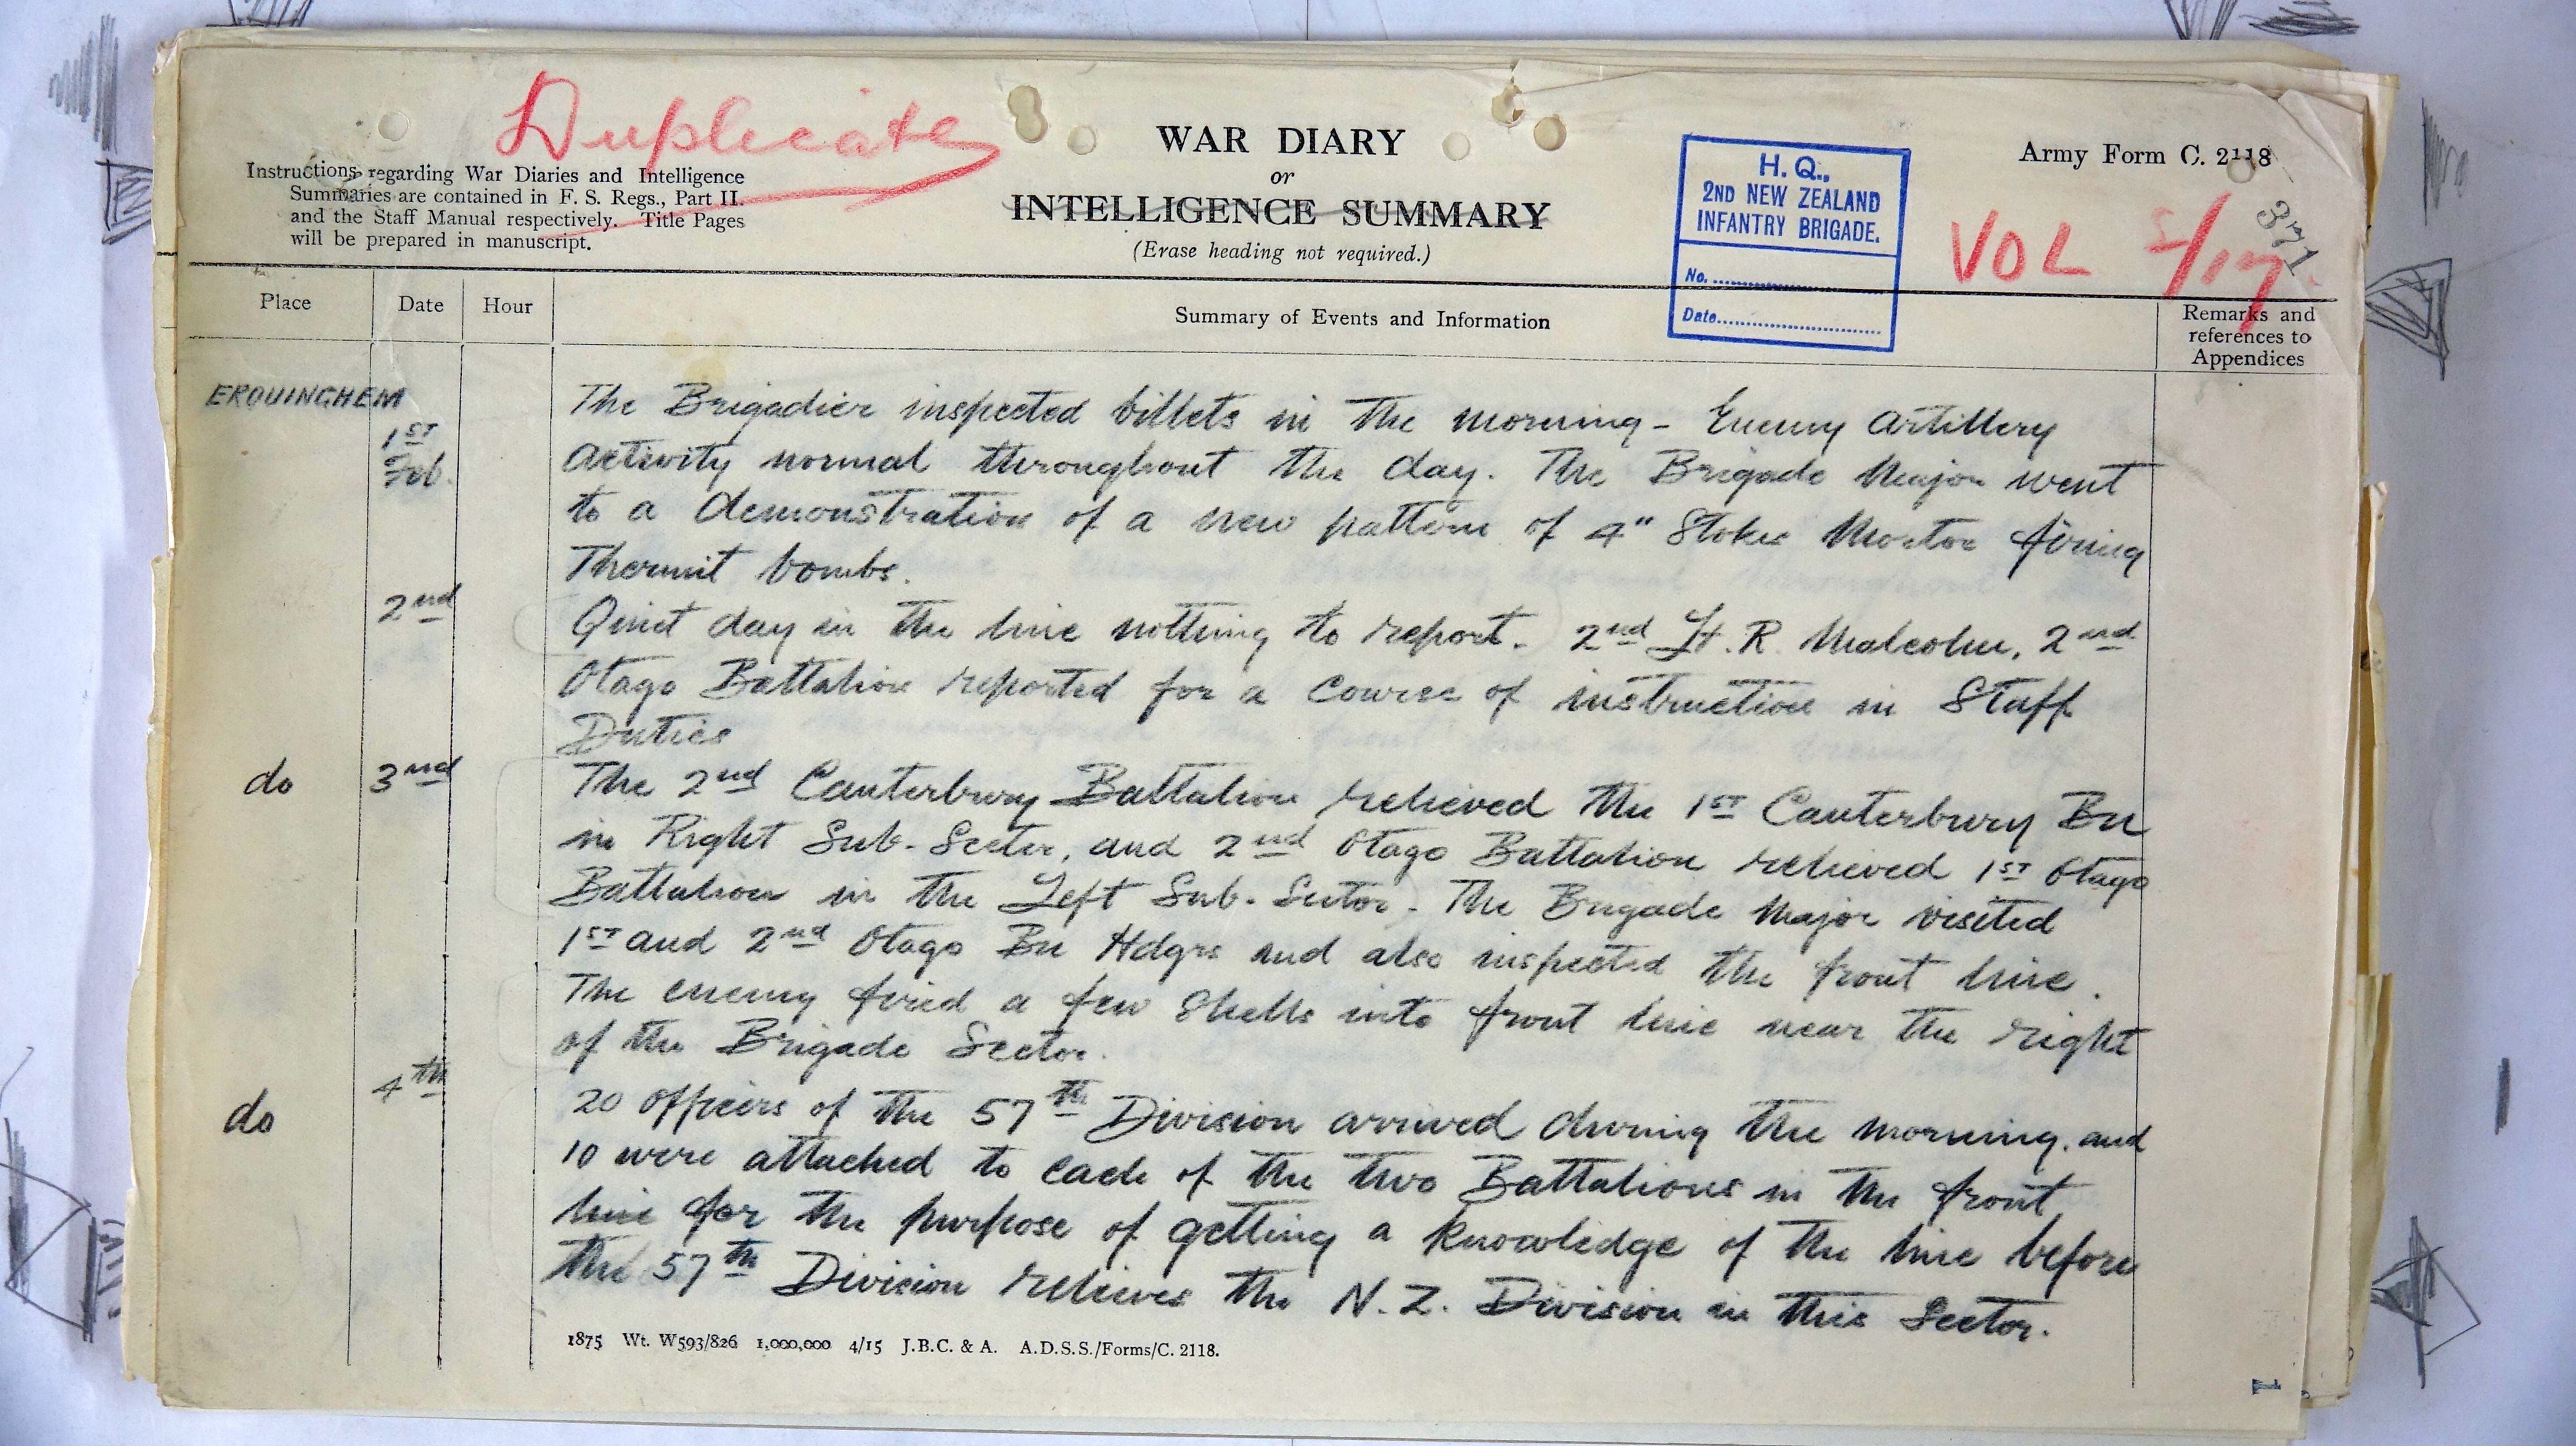 Duplicate
Instructions regarding War Diaries and Intelligence
Summaries are contained in F. S. Regs., Part II.
and the Staff Manual respectively. Title Pages
will be prepared in manuscript.
WAR DIARY
or
INTELLIGENCE SUMMARY
(Erase heading not required.)
H.Q.,
2ND NEW ZEALAND
INFANTRY BRIGADE.
No.
Date
Army Form C. 2118
371
VOL /17
Place
Date
Hour
Summary of Events and Information
Remarks and
references to
Appendices
ERQUINGHEM
1ST
Feb.
The Brigadier inspected billets in the morning - Enemy Artillery
Activity normal throughout the day. The Brigade Major went
to a demonstration of a new pattern of 4" Stokes Mortor firing
Thermit bombs.
2nd
Quiet day in the line nothing to report. 2nd Lt. R. Malcolm, 2nd
Otago Battalion reported for a course of instruction in Staff
Duties
do
3nd
The 2nd Canterbury Battalion relieved the 1ST Canterbury Bn
in Right Sub-Sector, and 2nd Otago Battalion relieved 1ST Otago
Battalion in the Left Sub-Sector. The Brigade Major visited
1ST and 2nd Otago Bn Hdqrs and also inspected the front line.
The enemy fired a few shells into front line near the right
of the Brigade Sector.
do
4th
20 officers of the 57th Division arrived during the morning, and
10 were attached to each of the two Battalions in the front
line for the purpose of getting a knowledge of the line before
the 57th Division relieves the N.Z. Division in this Sector.
1875 Wt. W593/826 1,000,000 4/15 J.B.C. & A. A.D.S.S./Forms/C. 2118.
1